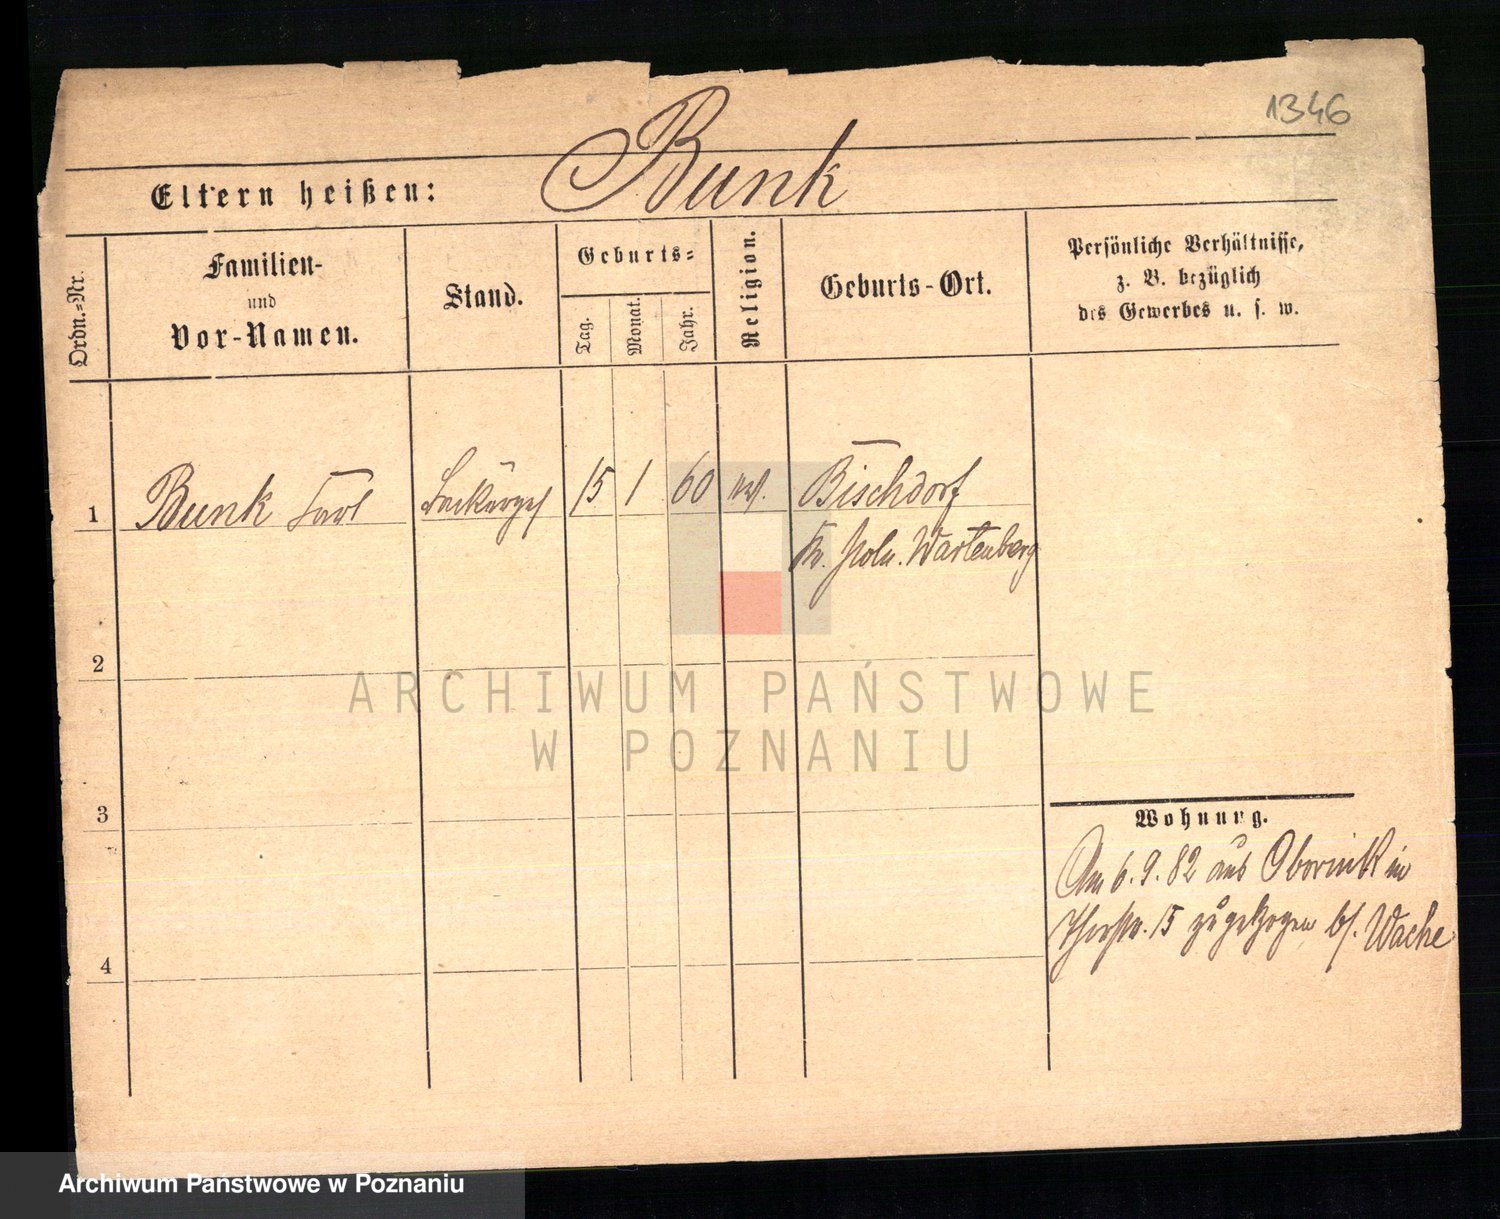 1346
Bunk
Eltern heißen:
Ordn.=Nr.
Familien-
und
Vor-Namen.
Stand.
Geburts=
Tag.
Monat.
Jahr.
Religion.
Geburts-Ort.
Persönliche Verhältnisse,
z. B. bezüglich
des Gewerbes u. s. w.
1 Bunk Carl 15 1 60 Bischdorf
Kr. Poln. Wartenberg
2
3
4
Wohnung.
Am 6.9.82 aus Obornik in
Thorstr. 15 zugezogen b/. Wache
ARCHIWUM PAŃSTWOWE
W POZNANIU
Archiwum Państwowe w Poznaniu